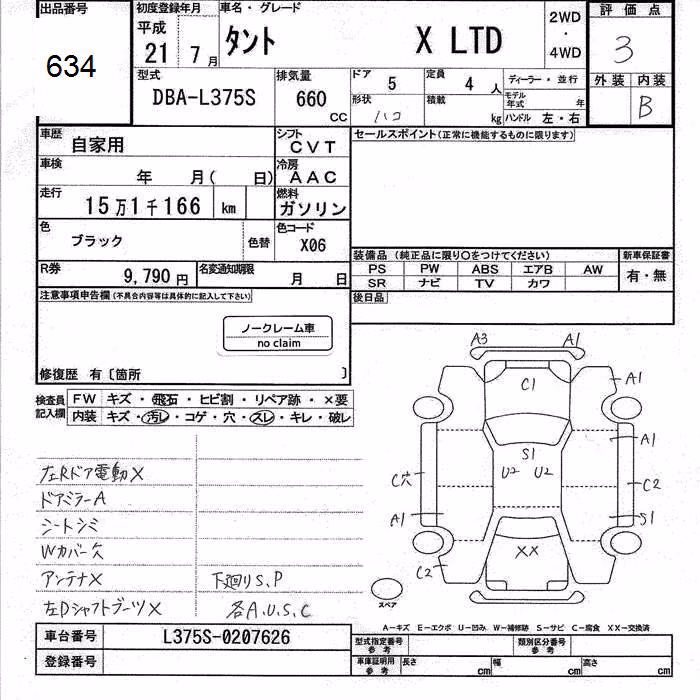 出品番号
634
初度登録年月
平成
21 7月
車名・グレード
タント X LTD
2WD
・
4WD
評価点
3
型式
DBA-L375S
排気量
660
CC
ドア
5
定員
4 人
ディーラー・並行
形状
ハコ
積載
kg
モデル年式 年
ハンドル 左・右
外装 内装
B
車歴
自家用
シフト
CVT
車検
年 月( 日)
冷房
AAC
走行
15万1千166 km
燃料
ガソリン
色
ブラック
色替
色コード
X06
R券
9,790円
名変通知期限
月 日
セールスポイント(正常に機能するものに限ります)
装備品 (純正品に限り○をつけてください)
PS PW ABS エアB AW
SR ナビ TV カワ
新車保証書
有・無
後日品
注意事項申告欄(不具合内容等は具体的に記入して下さい)
ノークレーム車
no claim
修復歴 有〔箇所 〕
検査員記入欄
FW キズ・飛石・ヒビ割・リペア跡・×要
内装 キズ・汚レ・コゲ・穴・スレ・キレ・破レ
左Rドア電動X
ドアミラーA
シートシミ
Wカバー欠
アンテナX
下廻りS.P
左Dシャフトブーツ X
各A.U.S.C
A3
A1
C1
A1
A1
S1
U2 U2
C穴
C2
A1
S1
XX
C2
スペア
A−キズ E−エクボ U−凹み W−補修跡 S−サビ C−腐食 XX−交換済
車台番号
L375S-0207626
登録番号
型式指定番号
参考
類別区分番号
参考
車庫証明用
参考
長さ cm
幅 cm
高さ cm